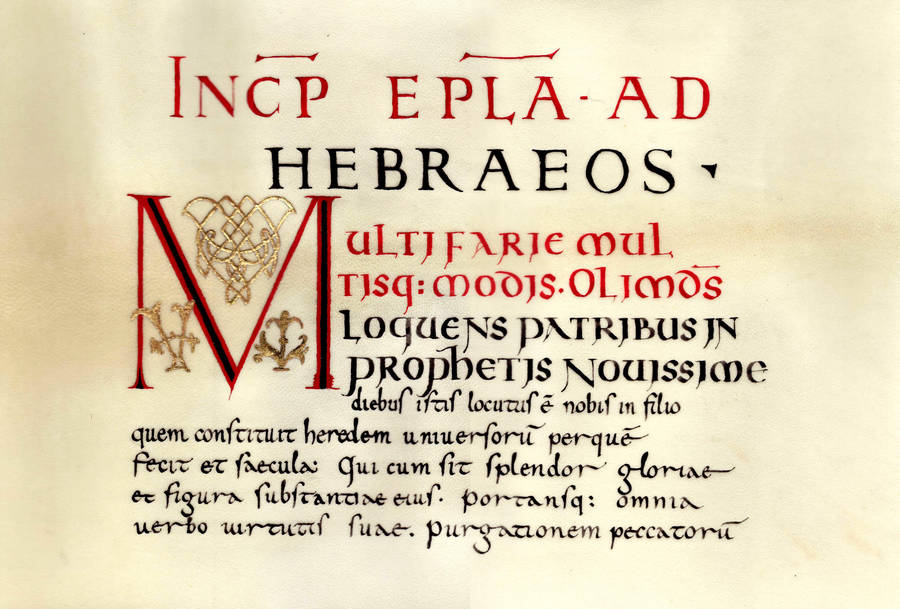 INC̄P EPL̄A · AD
HEBRAEOS ·
MULTIFARIE MUL
TISQ: MODIS. OLIM DS̄
LOQUENS PATRIBUS IN
PROPHETIS NOUISSIME
diebus istis locutus ē nobis in filio
quem constituit heredem uniuersorū perquē
fecit et saecula: Qui cum sit splendor gloriae
et figura substantiae eius. portansq: omnia
uerbo uirtutis suae. purgationem peccatorū